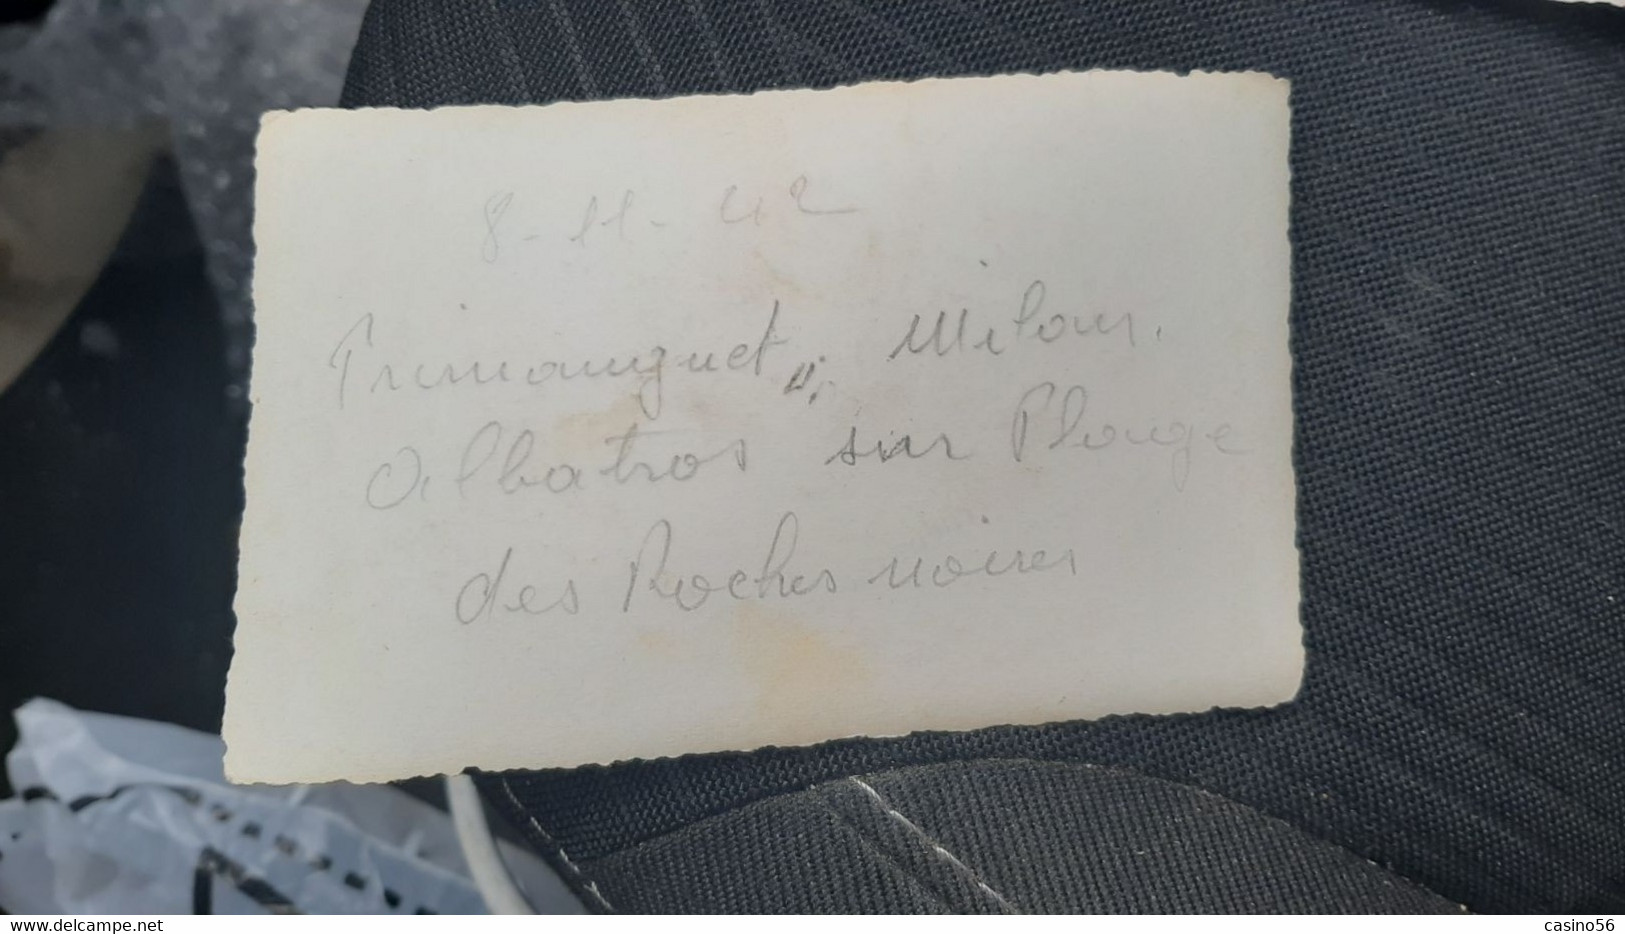 8-11-42
Primauguet, Milan.
Albatros sur Plage
des Roches noires
delcampe.net
casino56